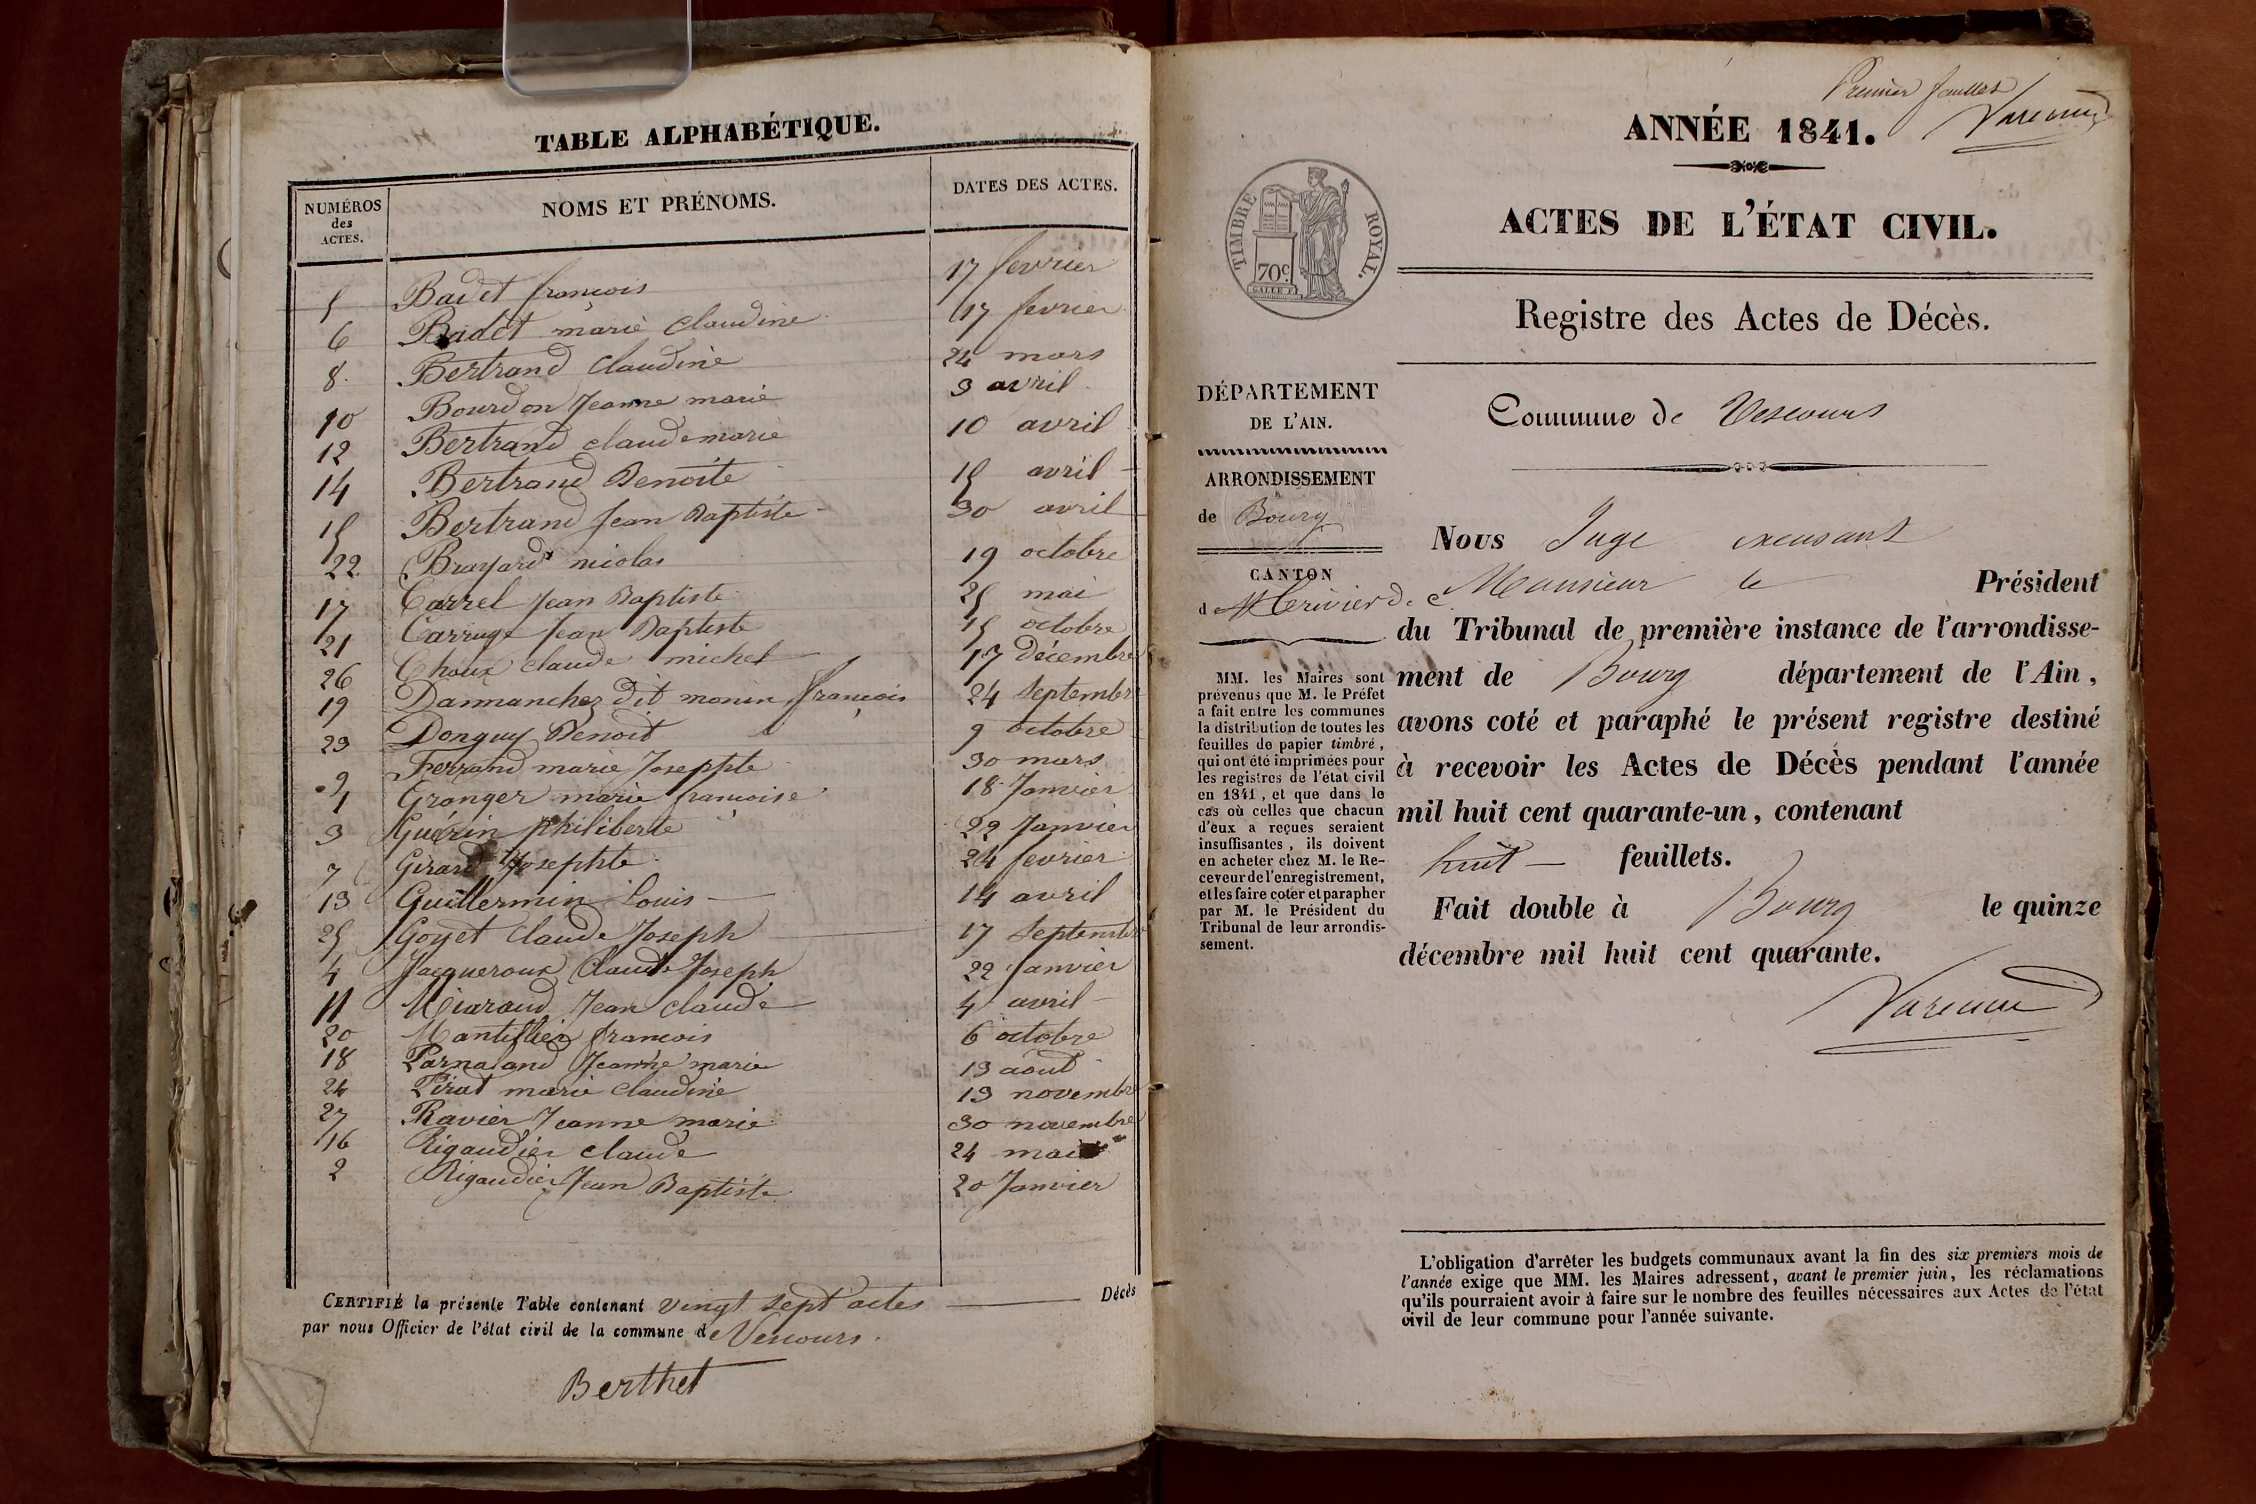 TABLE ALPHABÉTIQUE.
NUMÉROS des ACTES. NOMS ET PRÉNOMS. DATES DES ACTES.
5 Badet françois 17 fevrier
6 Badet marie Claudine 17 fevrier
8. Bertrand Claudine 24 mars
10 Bourdon Jeanne marie 3 avril
12 Bertrand claude marie 10 avril
14 Bertrand Benoite 15 avril
15 Bertrand Jean Baptiste 30 avril
22 Brayard nicolas 19 octobre
17 Carrel Jean Baptiste 25 mai
21 Carruge Jean Baptiste 15 octobre
26 Choux claude michel 17 décembre
19 Dannanchez dit monin françois 24 septembre
23 Donguy Benoit 9 octobre
9 Ferrand marie Josephte 30 mars
1 Granger marie francoise 18 Janvier
3 Guérin philiberte 22 Janvier
7 Girard Josephte 24 fevrier
13 Guillermin Louis 14 avril
25 Goyet Claude Joseph 17 septembre
4 Jacqueroux Claude Joseph 22 Janvier
11 Jean claude 4 avril
20 Mantillier françois 6 octobre
18 Parnaland Jeanne marie 13 août
24 Pirat marie claudine 13 novembre
27 Ravier Jeanne marie 30 novembre
16 Rigaudier claude 24 mai
2 Rigaudier Jean Baptiste 20 Janvier
CERTIFIÉ la présente Table contenant vingt sept actes Décès
par nous Officier de l'état civil de la commune de Vescours.
Berthet
Premier feuillet
ANNÉE 1841.
ACTES DE L'ÉTAT CIVIL.
TIMBRE ROYAL.
70c.
Registre des Actes de Décès.
DÉPARTEMENT
DE L'AIN.
ARRONDISSEMENT
de Bourg
CANTON
MM. les Maires sont
prévenus que M. le Préfet
a fait entre les communes
la distribution de toutes les
feuilles de papier timbré,
qui ont été imprimées pour
les registres de l'état civil
en 1841, et que dans le
cas où celles que chacun
d'eux a reçues seraient
insuffisantes, ils doivent
en acheter chez M. le Re-
ceveur de l'enregistrement,
et les faire coter et parapher
par M. le Président du
Tribunal de leur arrondis-
sement.
Commune de Vescours
Nous Juge excusant
Monsieur le Président
du Tribunal de première instance de l'arrondisse-
ment de Bourg département de l'Ain,
avons coté et paraphé le présent registre destiné
à recevoir les Actes de Décès pendant l'année
mil huit cent quarante-un, contenant
huit feuillets.
Fait double à Bourg le quinze
décembre mil huit cent quarante.
L'obligation d'arrêter les budgets communaux avant la fin des six premiers mois de
l'année exige que MM. les Maires adressent, avant le premier juin, les réclamations
qu'ils pourraient avoir à faire sur le nombre des feuilles nécessaires aux Actes de l'état
civil de leur commune pour l'année suivante.